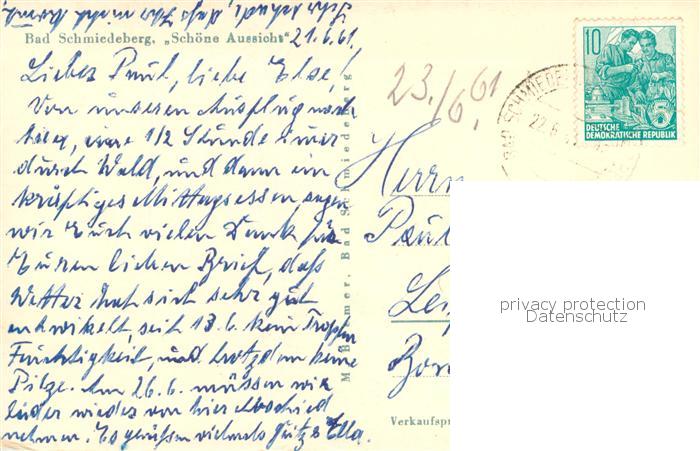 Sehr schade, daß Ihr nicht kommt
Bad Schmiedeberg, „Schöne Aussicht"
21.6.61
Lieber Paul, liebe Else!
Von unserem Ausflug nach
hier, eine 1/2 Stunde
durch Wald, und dann ein
kräftiges Mittagsessen, sagen
wir Euch vielen Dank für
Euren lieben Brief, daß
Wetter hat sich sehr gut
entwikelt, seit 13.6. kein Tropfen
Feuchtigkeit, und trotzdem keine
Pilze. Am 26.6. müssen wir
leider wieder von hier Abschied
nehmen. Es grüßen vielmals Fritz & Ella.
Bad Schmiedeberg
23./6.61
Herrn
Paul
Verkaufspr
BAD SCHMIEDE
22.6.
10
5
DEUTSCHE
DEMOKRATISCHE REPUBLIK
privacy protection
Datenschutz